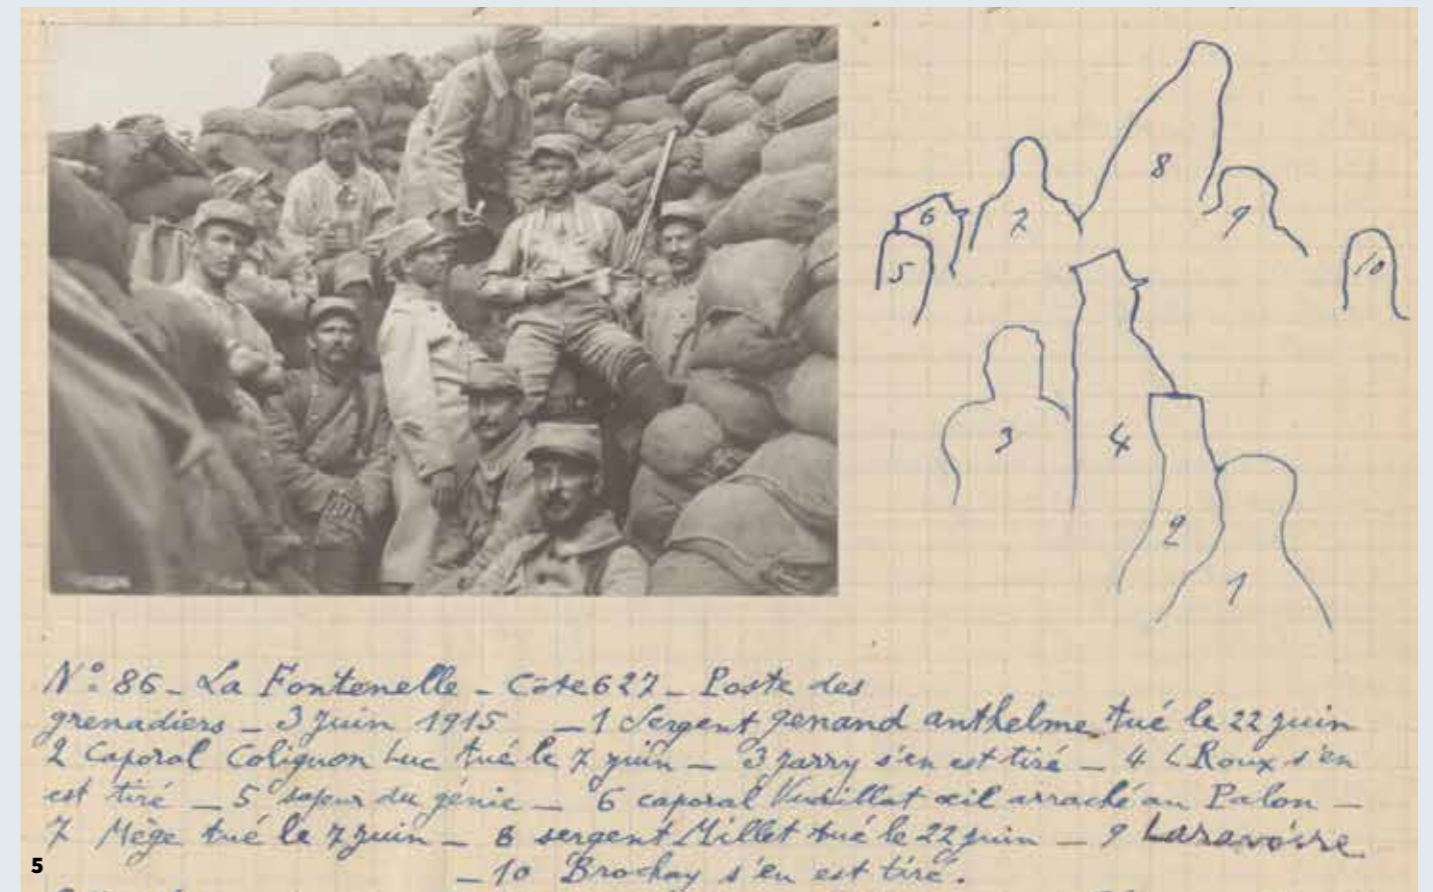 8
6
7
9
5
10
3
4
2
1
N° 86 - La Fontenelle - Côte 627 - Poste des
grenadiers - 3 Juin 1915 - 1 Sergent genand anthelme tué le 22 juin
2 Caporal Colignon Luc tué le 7 juin - 3 Jarry s'en est tiré - 4 L Roux s'en
est tiré - 5 sapeur du génie - 6 caporal Vuillat œil arraché au Palon -
7 Mège tué le 7 juin - 8 sergent Millet tué le 22 juin - 9
- 10 Brochay s'en est tiré.
5